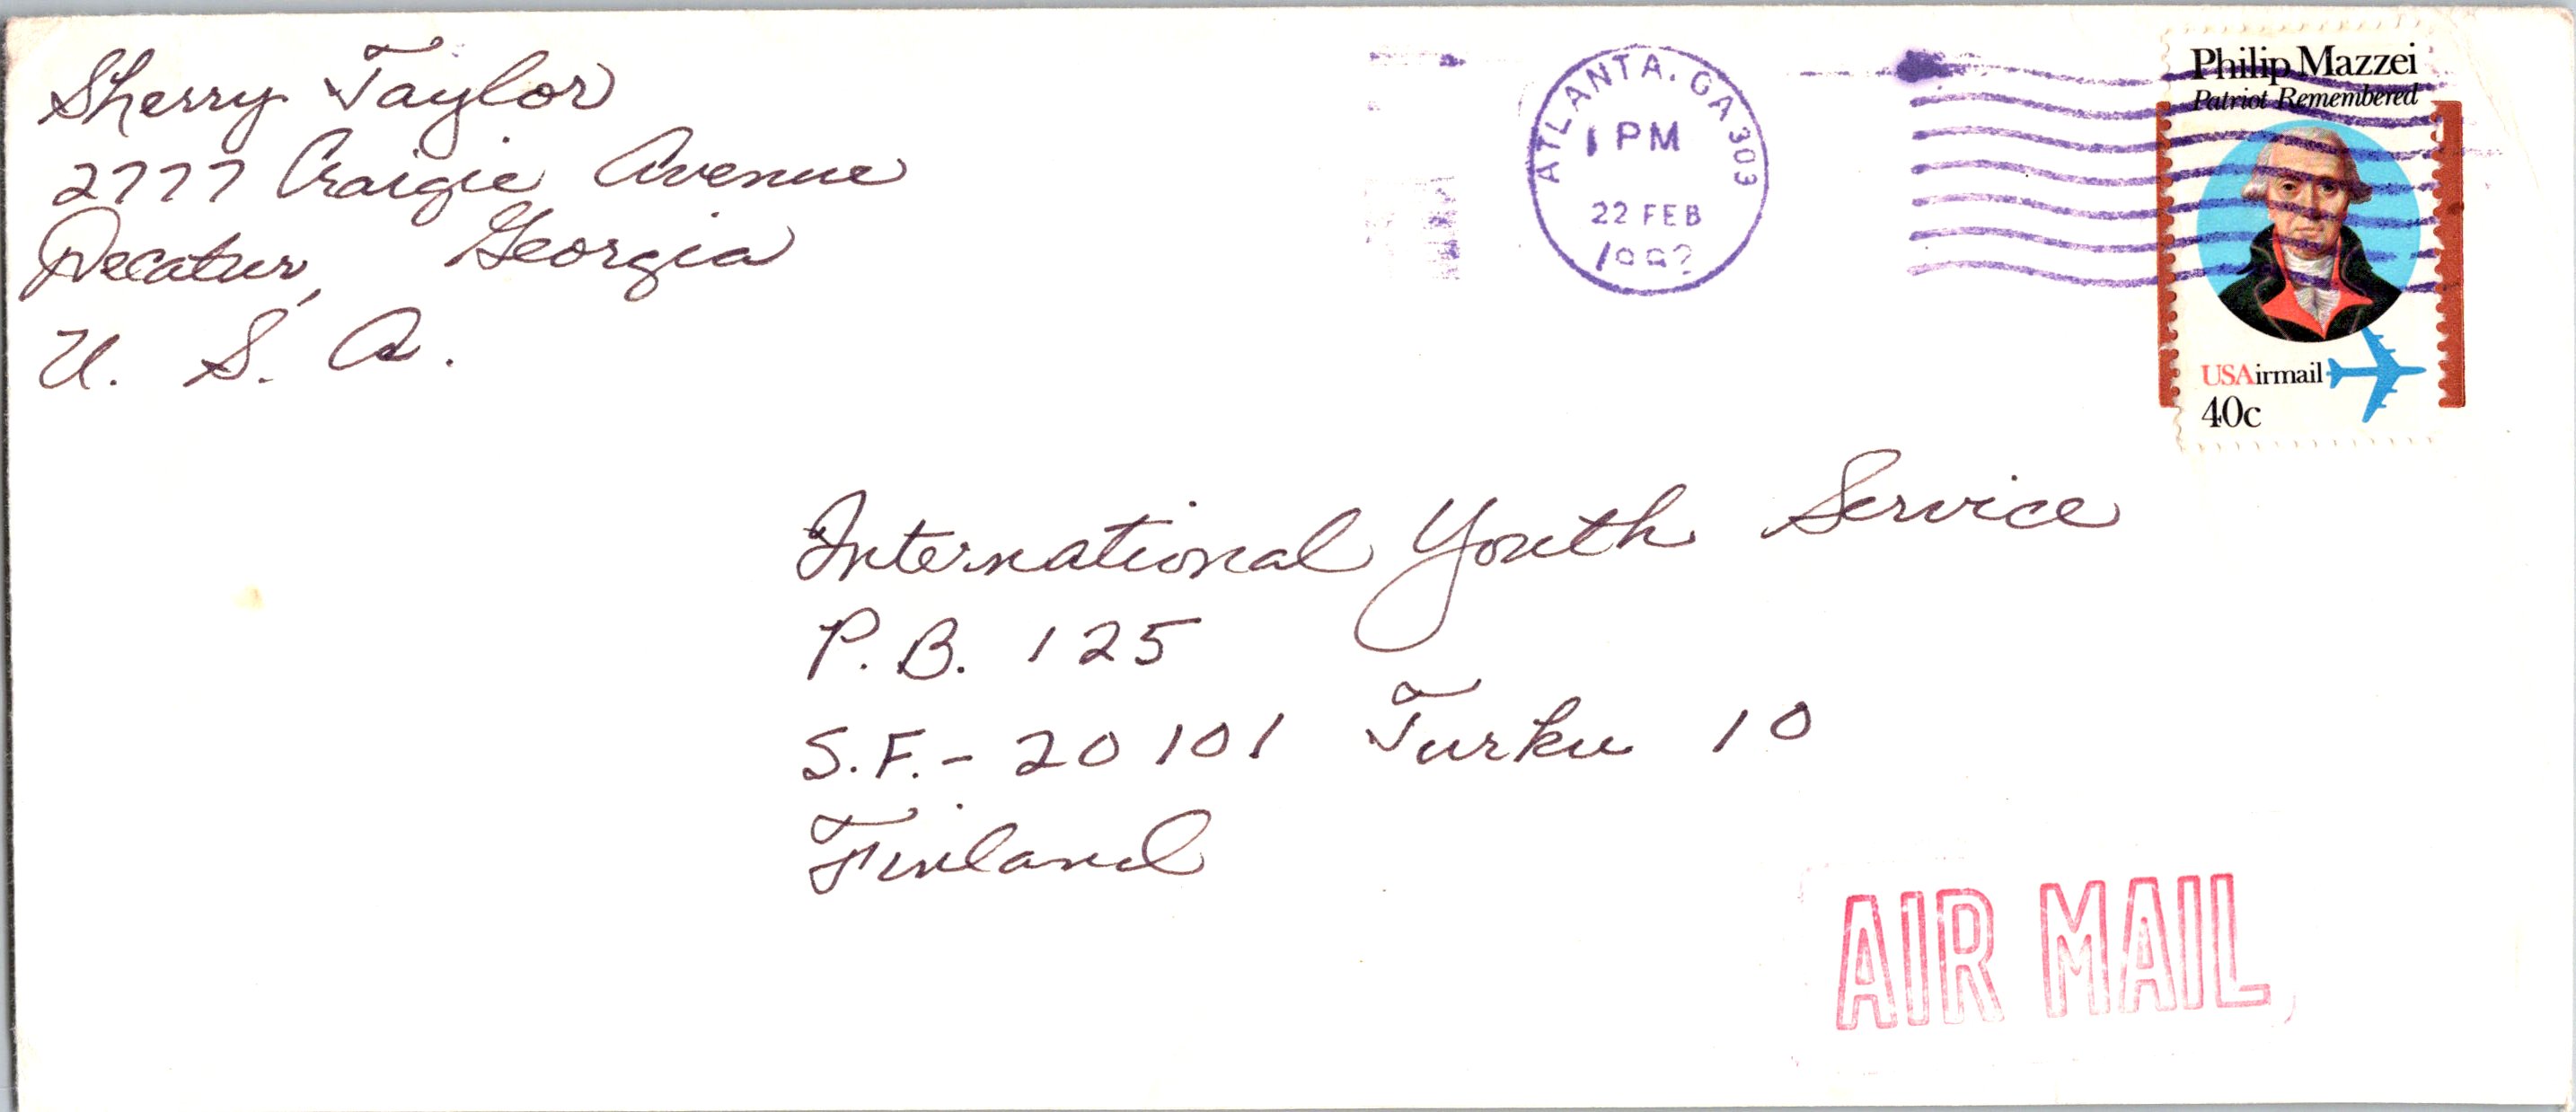 Sherry Taylor
2777 Craigie Avenue
Decatur, Georgia
U. S. A.
ATLANTA, GA 303
1 PM
22 FEB
Philip Mazzei
Patriot Remembered
USAirmail
40c
International Youth Service
P.B. 125
S.F.- 20101 Turku 10
Finland
AIR MAIL